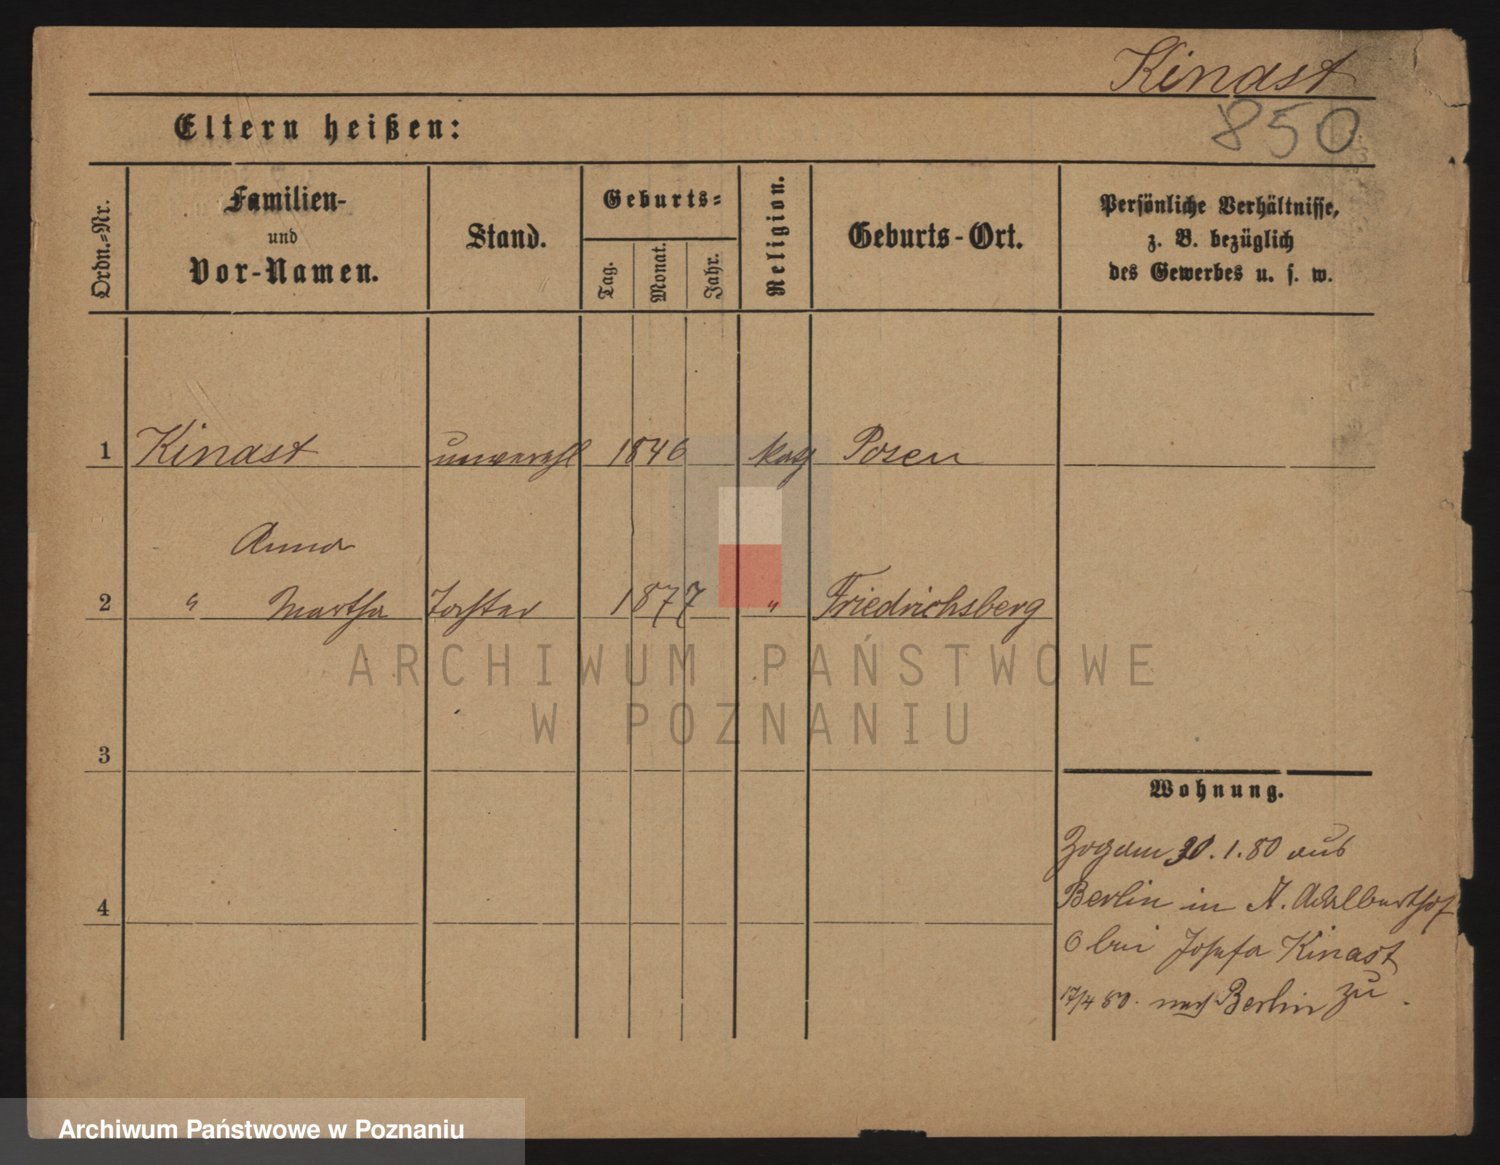 Kinast
850
Eltern heißen:
Ordn.-Nr.
Familien-
und
Vor-Namen.
Stand.
Geburts-
Tag.
Monat.
Jahr.
Religion.
Geburts-Ort.
Persönliche Verhältnisse,
z. B. bezüglich
des Gewerbes u. s. w.
1 Kinast unverehl 1846 kath Posen
Anna
2 " Martha Tochter 1877 " Friedrichsberg
3
4
Wohnung.
Zog am 30.1.80 aus
Berlin in St. Adalberthof
6 bei Josefa Kinast
17/4 80. nach Berlin zu.
ARCHIWUM PAŃSTWOWE
W POZNANIU
Archiwum Państwowe w Poznaniu